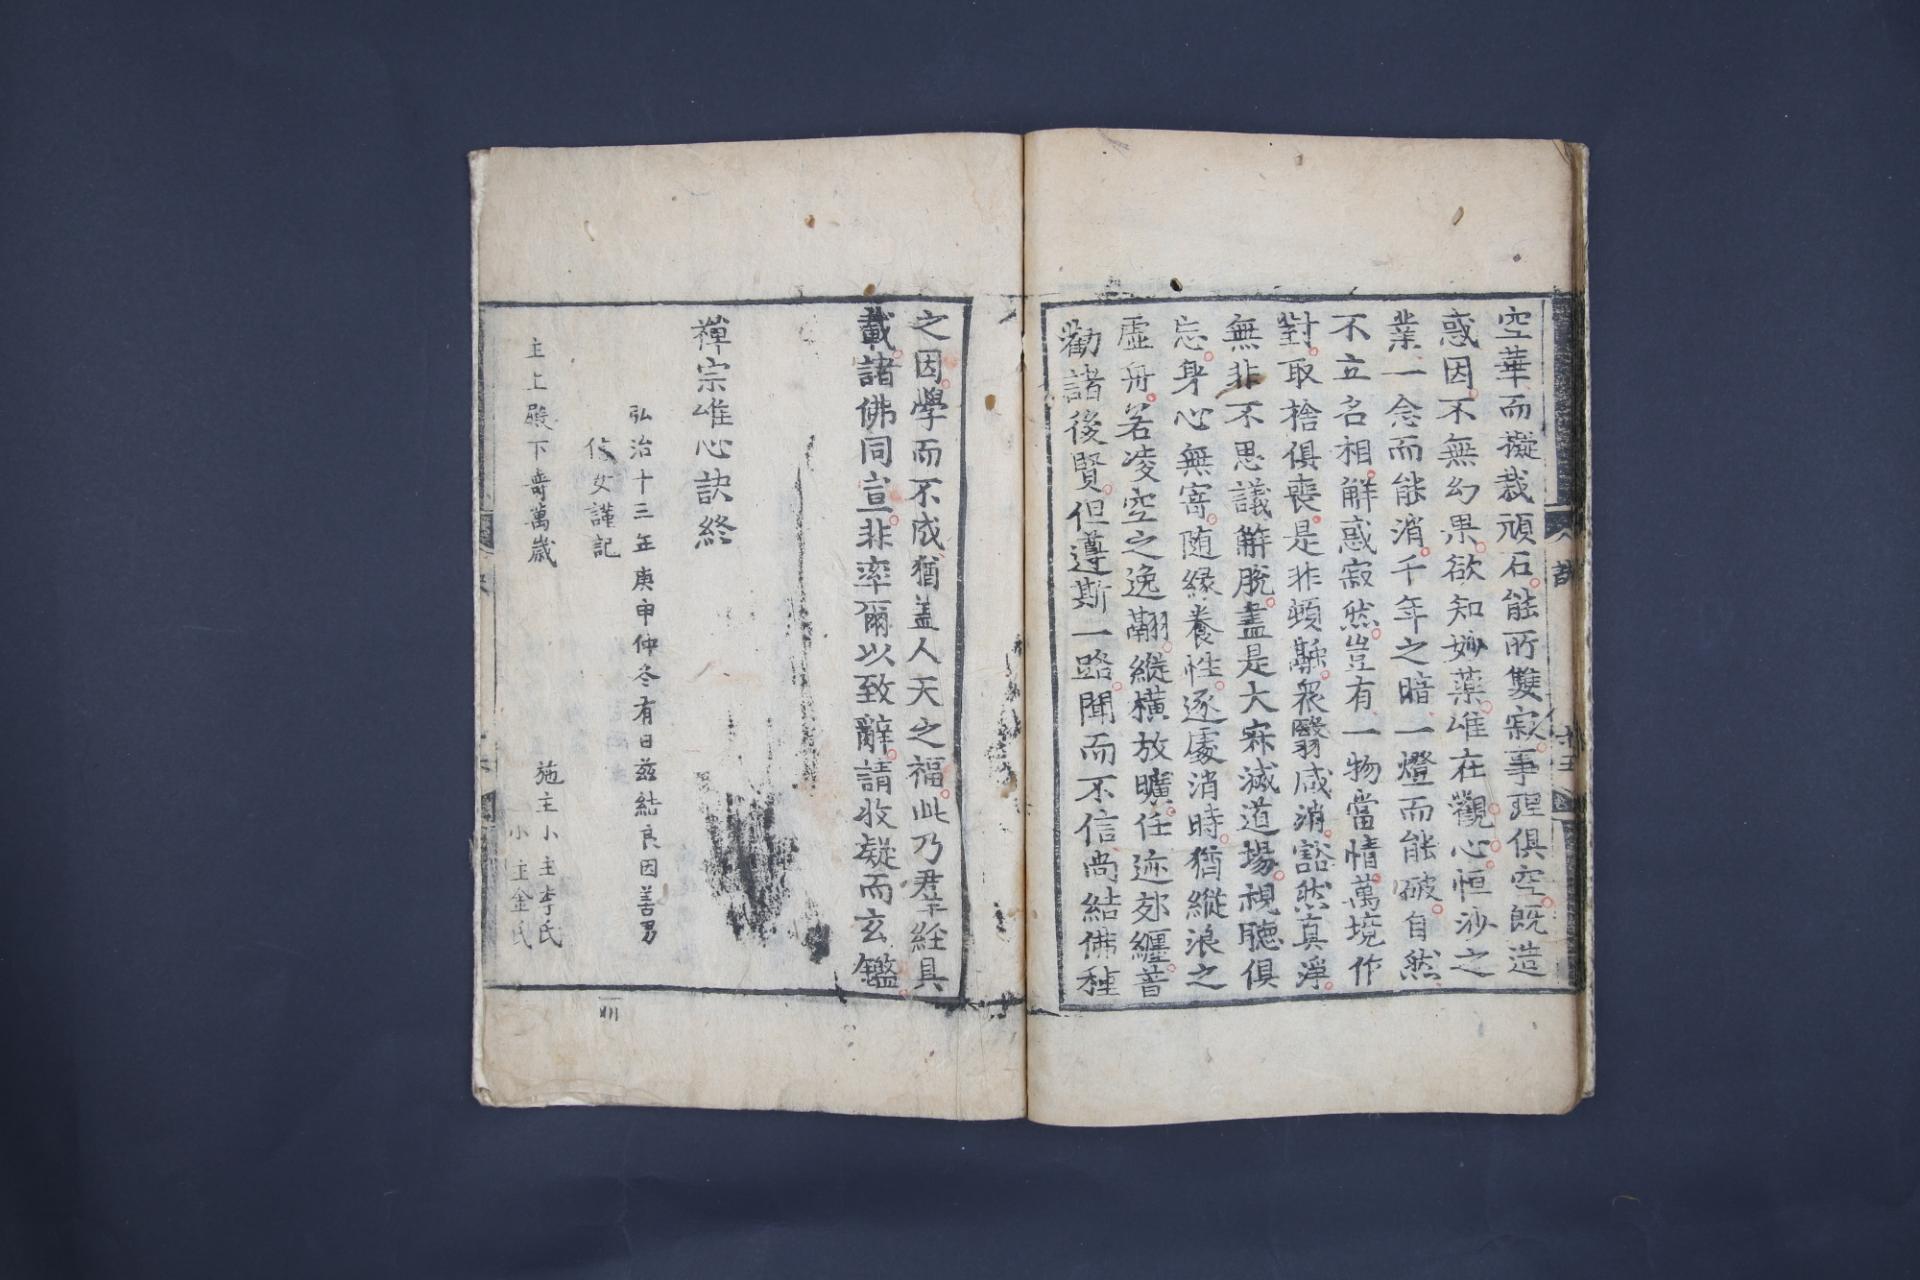 空華而擬栽頑石能所雙寂事理俱空旣造
惑因不無幻果欲知妙藥唯在觀心恒沙之
業一念而能消千年之暗一燈而能破自然
不立名相解惑寂然豈有一物當情萬境作
對取捨俱喪是非頓融衆翳咸消豁然真淨
無非不思議解脫盡是大寂滅道場視聽俱
忘身心無寄随緣養性逐處消時猶縱浪之
虛舟若凌空之逸翮縱横放曠任迹郊纏普
勸諸後賢但遵斯一路聞而不信尚結佛種
之因學而不成猶盖人天之福此乃羣經具
載諸佛同宣非率爾以致辭請收凝而玄鑑
禪宗唯心訣終
弘治十三年庚申仲冬有日兹結良因善男
信女謹記
主上殿下壽萬歲
施主小主李氏
小主金氏
訣
十五